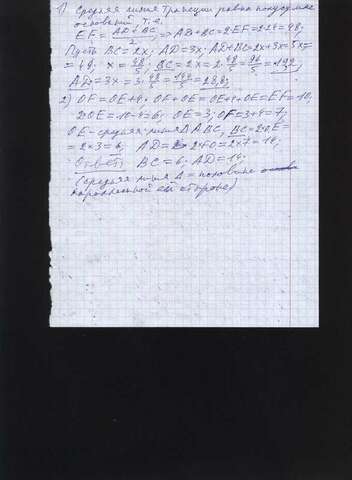 1) Средняя линия трапеции равна полусумме
оснований, т.е.
EF = AD + BC / 2 ⇒ AD + BC = 2·EF = 2·24 = 48;
Пусть BC = 2x; AD = 3x; AD + BC = 2x + 3x = 5x =
= 48; x = 48/5; BC = 2x = 2·48/5 = 96/5 =
AD = 3x = 3·48/5 =
2) OF = OE + 4; OF + OE = OE + 4 + OE = EF = 10;
2OE = 10 - 4 = 6; OE = 3; OF = 3 + 4 = 7;
OE - средняя линия ∆ ABC, BC = 2·OE =
= 2×3 = 6; AD = 2×7 = 14;
Ответ BC = 6; AD = 14;
(средняя линия ∆ = половине
параллельной ей стороне)